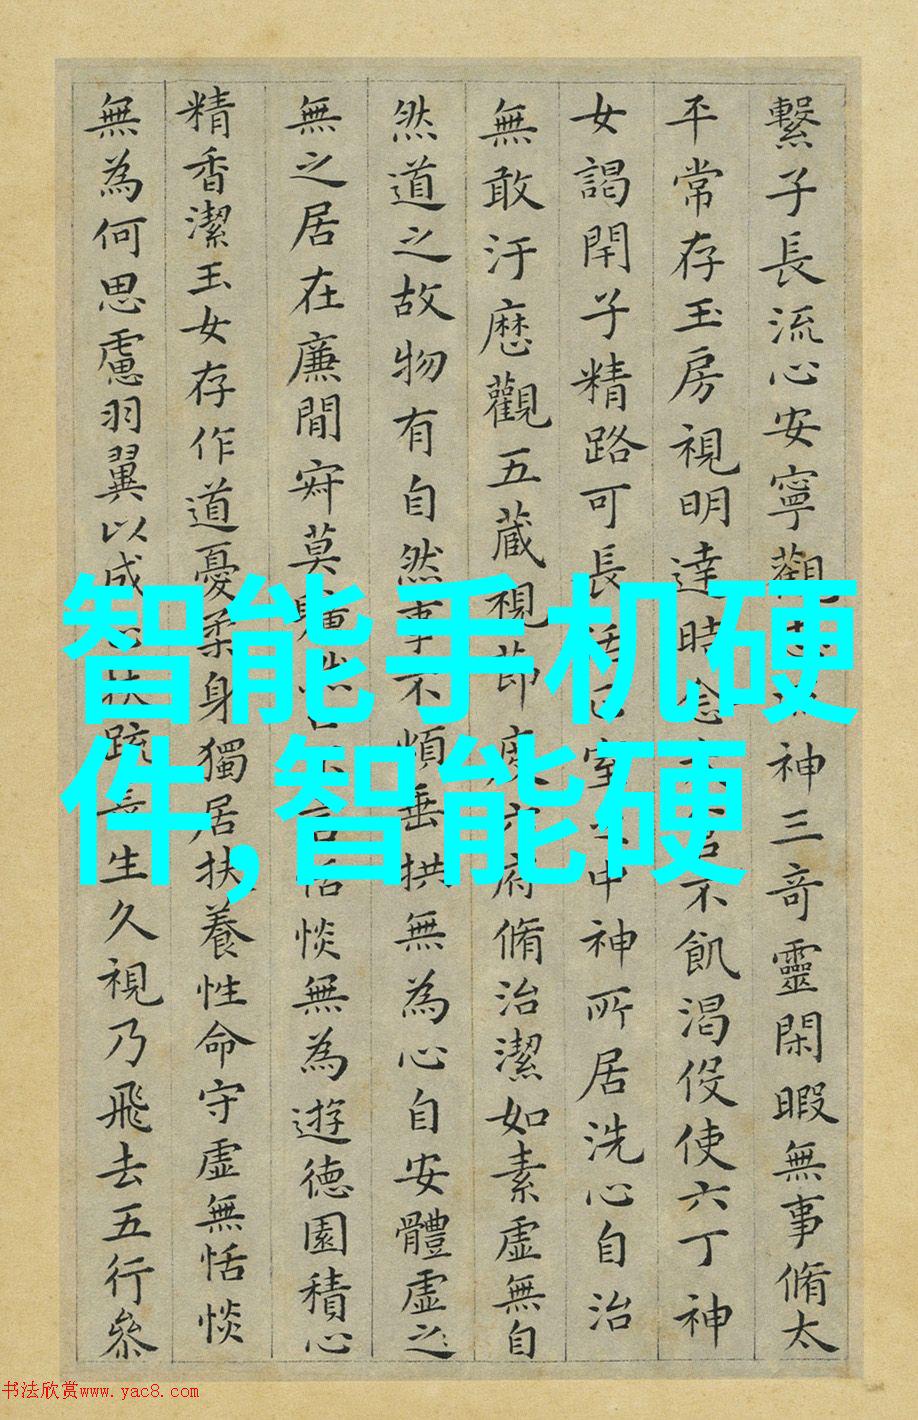 繫子長流心安寧觀神三奇靈閑暇無事脩太
平常存玉房視明達時念不飢渴伇使六丁神
女謁閇子精路可長活室中神所居洗心自治
無敢汙歷觀五藏視節度六府脩治潔如素虛無自
然道之故物有自然事不煩垂拱無為心自安體虛之
無之居在廉間寂莫曠然言恬惔無為遊德園積心
精香潔玉女存作道憂柔身獨居扶養性命守虛無恬惔
無為何思慮羽翼以成扶疏長生久視乃飛去五行參
智能手机硬
件,智能硬
书法欣赏www.yac8.com